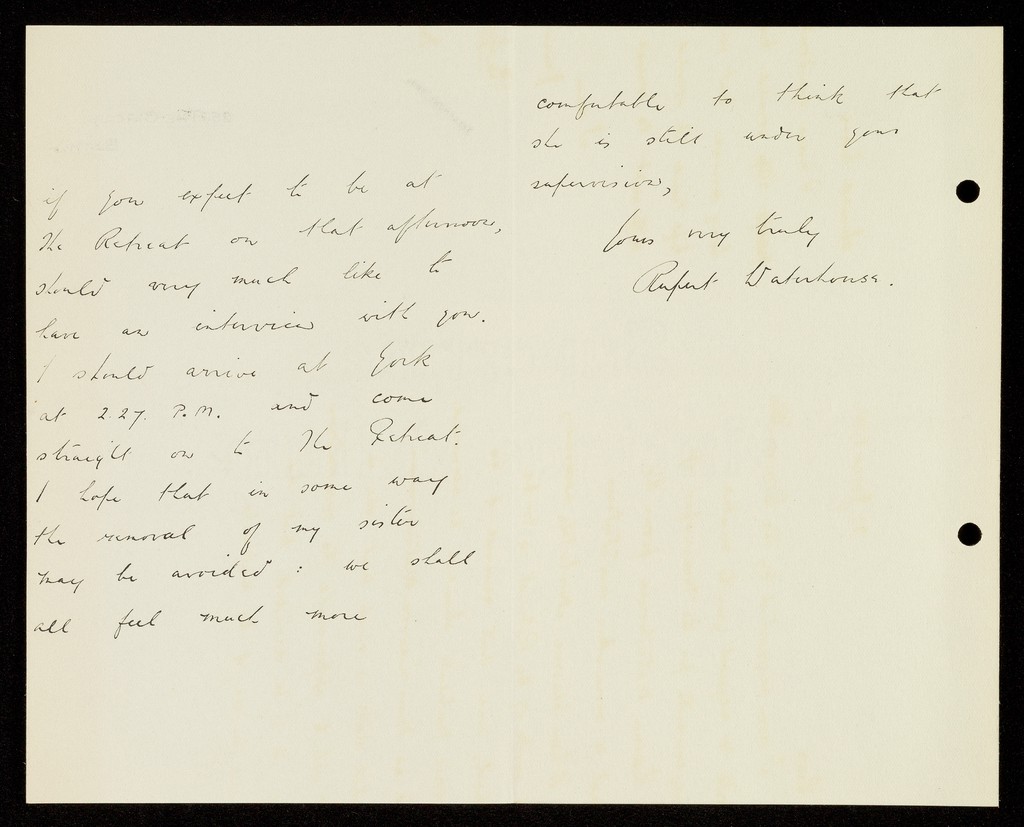 if you expect to be at
The Retreat on that afternoon,
should very much like to
have an interview with you.
I should arrive at York
at 2.27. P.M. and come
straight on to The Retreat.
I hope that in some way
the removal of my sister
may be avoided : we shall
all feel much more
comfortable to think that
she is still under your
supervision,
Yours very truly
Rupert Waterhouse.